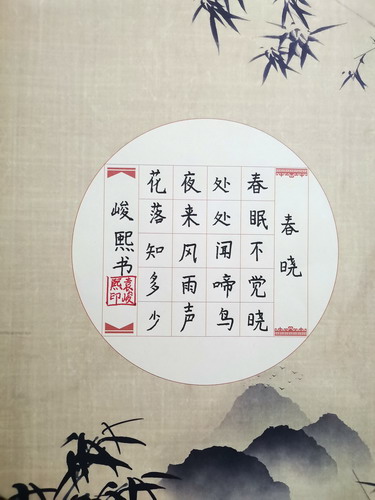 春晓
春眠不觉晓
处处闻啼鸟
夜来风雨声
花落知多少
峻熙书
袁峻熙印